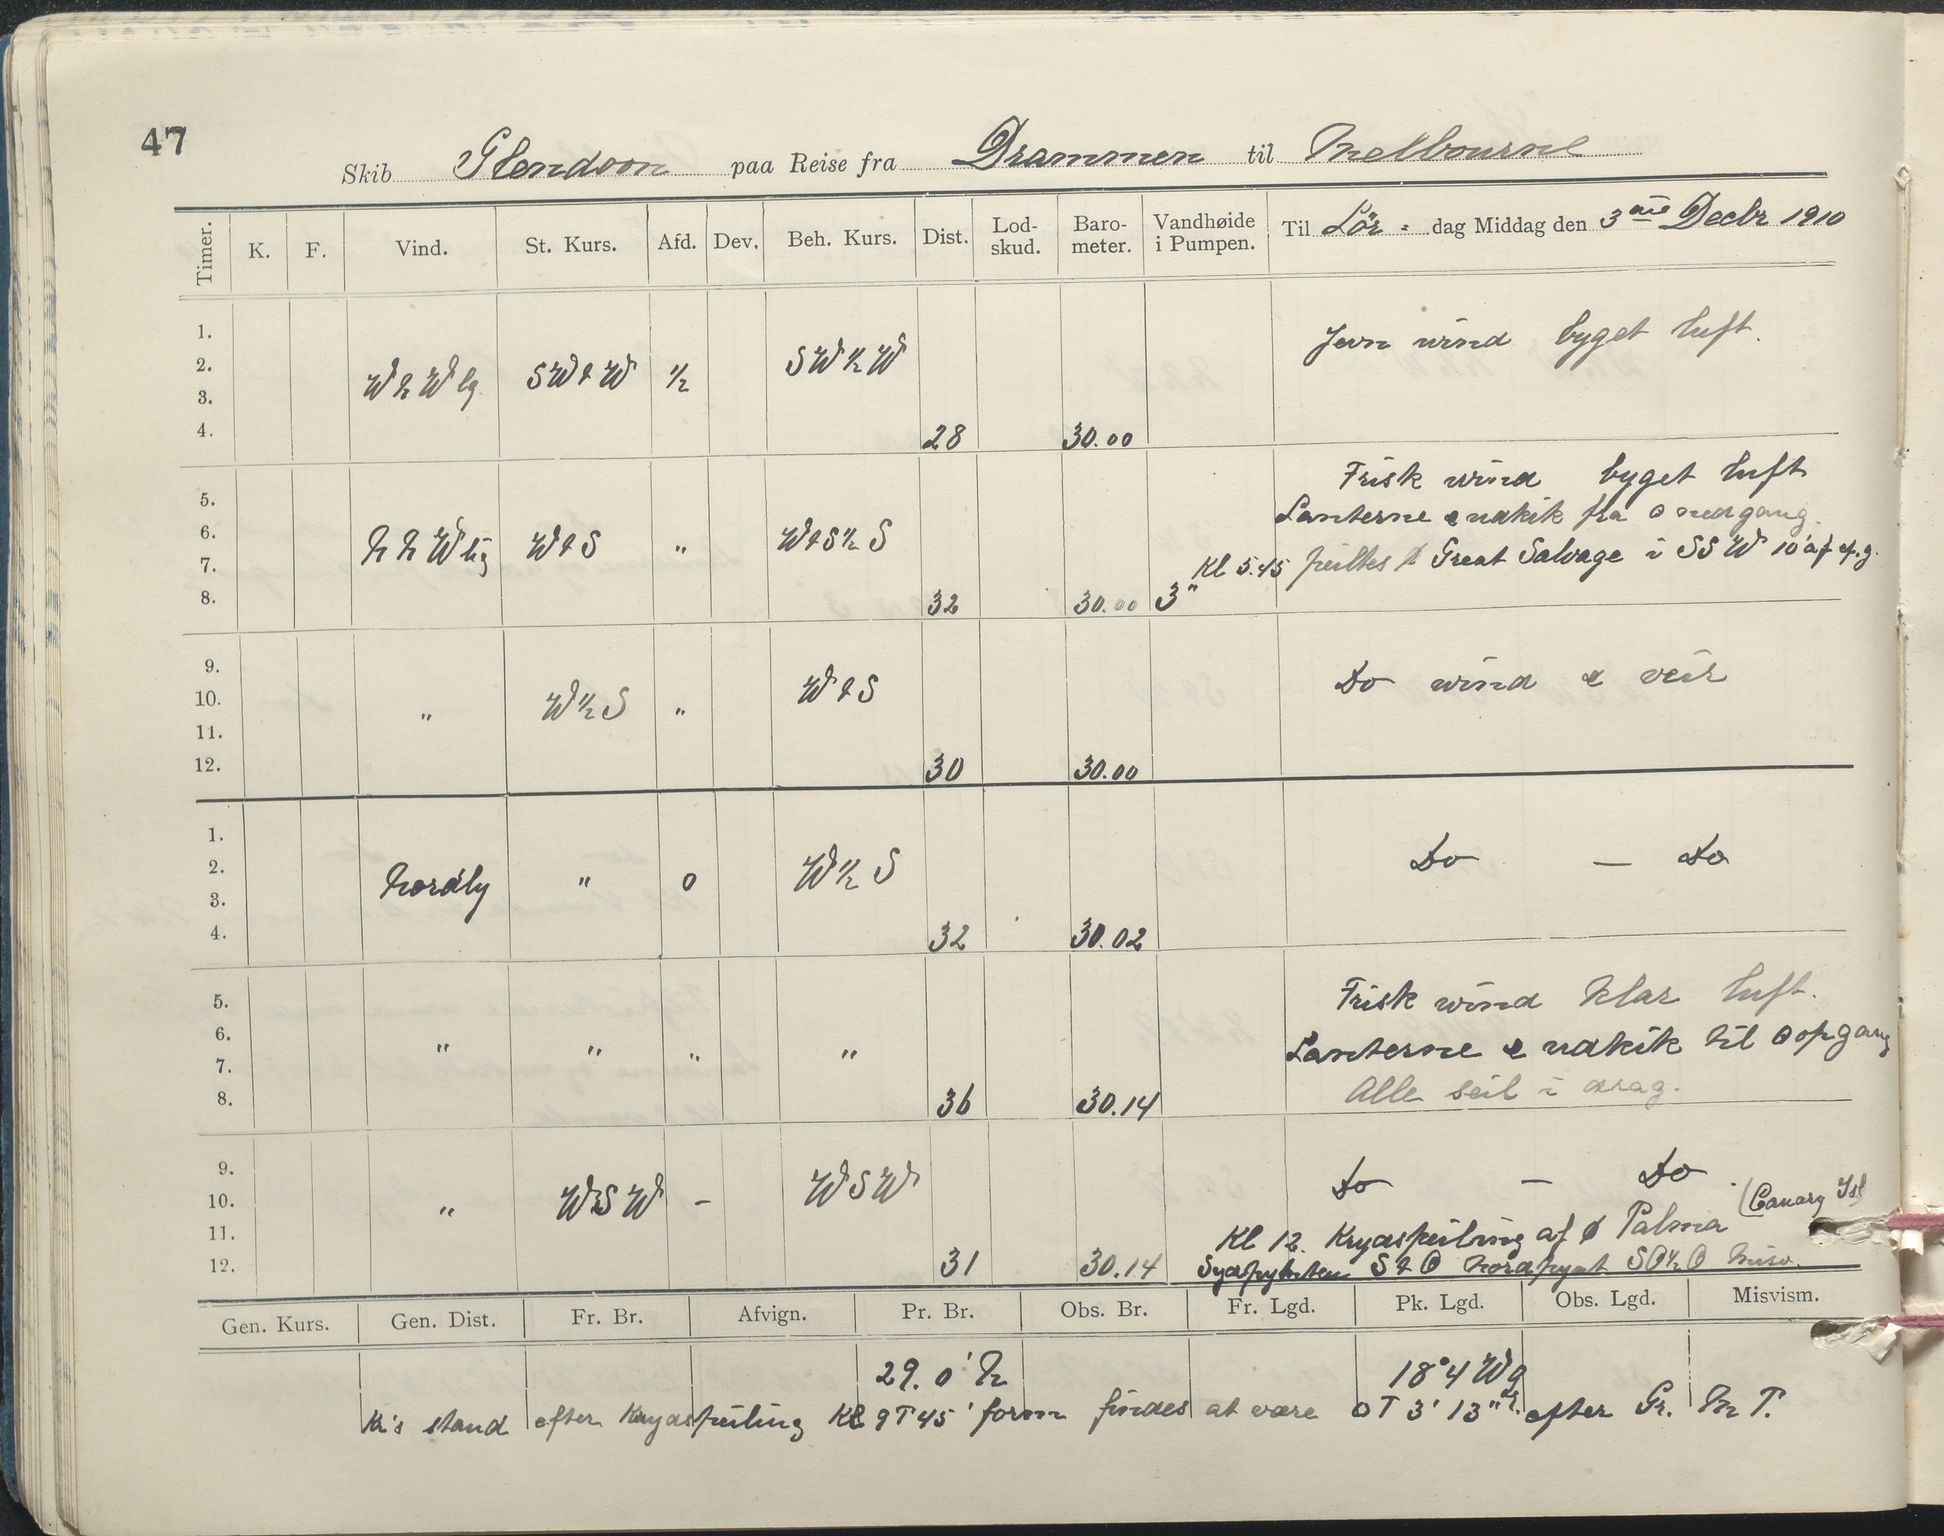 47
Skib Glendoon paa Reise fra Drammen til Melbourne
Timer. K. F. Vind. St. Kurs. Afd. Dev. Beh. Kurs. Dist. Lod-skud. Baro-meter. Vandhøide i Pumpen. Til Lör = dag Middag den 3die Decbr 1910
1. Jevn wind byget luft.
2. WNWlg SWtW ½ SW½W
3.
4. 28 30.00
Frisk wind byget luft
5. Lanterne & udkik fra ⊙ nedgang.
6. NNWlig WtS " WtS½S
7. Kl 5.45 peiltes Great Salvage i SSW 10' af
8. 32 30.00 3"
9.
10. " W½S " WtS Do wind & veir
11.
12. 30 30.00
1.
2. Nordly " 0 W½S Do — Do
3.
4. 32 30.02
5. Frisk wind klar luft.
6. " " " " Lanterne & udkik til ⊙ opgang
7. Alle seil i drag.
8. 36 30.14
9. Do — Do
10. " WSW - WSW
11. Kl 12. Krydspeiling af Ø Palma (Canary Isl)
12. 31 30.14 Sydpynten StO Nordpynt SO½O misv.
Gen. Kurs. Gen. Dist. Fr. Br. Afvign. Pr. Br. Obs. Br. Fr. Lgd. Pk. Lgd. Obs. Lgd. Misvism.
29.0' N 18°4 Wg
Kr's stand efter Krydspeiling Kl 9T 45' form findes at være 0T 3' 13" efter Gr. M T.